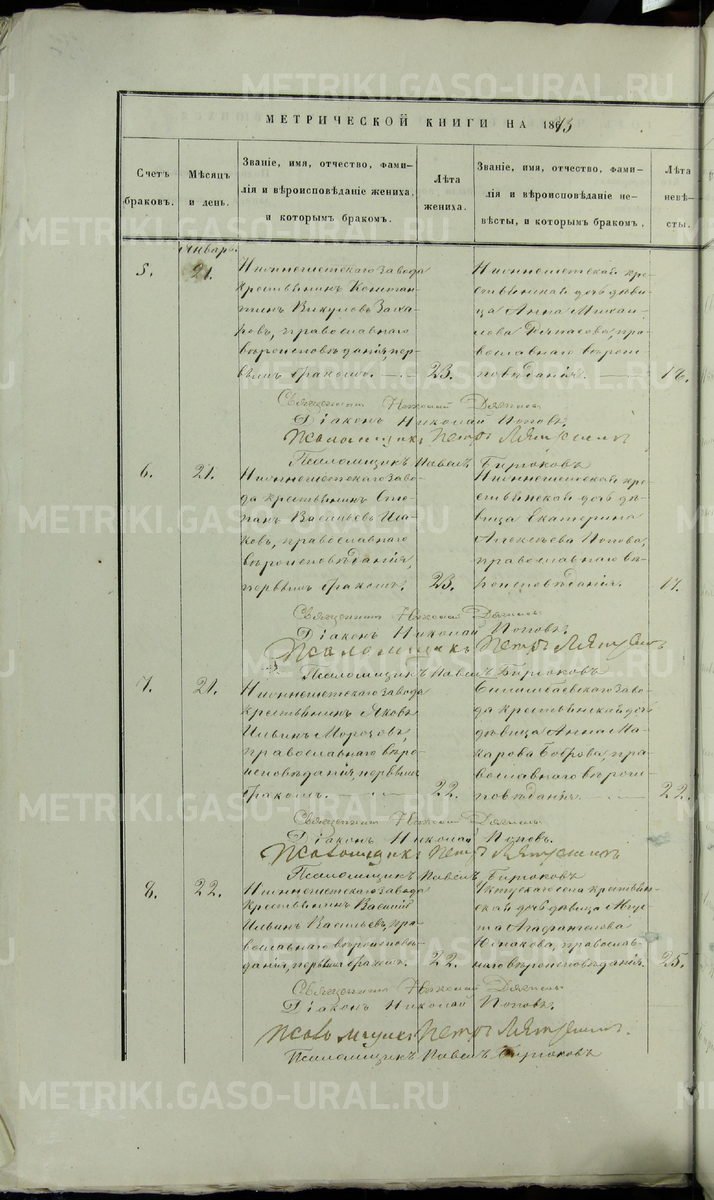 METRIKI.GASO-URAL.RU
МЕТРИЧЕСКОЙ КНИГИ НА 1893
Счетъ браковъ.
Мѣсяцъ и день.
Званіе, имя, отчество, фами-
лія и вѣроисповѣданіе жениха,
и которымъ бракомъ.
Лѣта жениха.
Званіе, имя, отчество, фами-
лія и вѣроисповѣданіе не-
вѣсты, и которымъ бракомъ.
Лѣта невѣ-
сты.
Январь.
5.
21.
Нижнешетскаго завода
крестьянинъ Констан-
тинъ Викуловъ Заха-
ровъ, православнаго
вѣроисповѣданія, пер-
вымъ бракомъ.
23.
Нижнешетская кре-
стьянская дочь дѣви-
ца Анна Михаи-
лова, пра-
вославнаго вѣроис-
повѣданія.
18.
Священникъ Николай
Діаконъ Николай Поповъ.
Псаломщикъ Петръ
Псаломщикъ Павелъ Бирюковъ
6.
21.
Нижнешетскаго заво-
да крестьянинъ Сте-
панъ Васильевъ Иса-
ковъ, православнаго
вѣроисповѣданія,
первымъ бракомъ.
23.
Нижнешетская кре-
стьянская дочь дѣ-
вица Екатерина
Алексѣева Попова,
православнаго вѣ-
роисповѣданія.
17.
Священникъ Николай
Діаконъ Николай Поповъ.
Псаломщикъ Петръ
Псаломщикъ Павелъ Бирюковъ
7.
21.
Нижнешетскаго завода
крестьянинъ Яковъ
Ильинъ Морозовъ,
православнаго вѣро-
исповѣданія, первымъ
бракомъ.
22.
Билимбаевскаго заво-
да крестьянская дочь
дѣвица Анна Ма-
карова Боброва, пра-
вославнаго вѣроис-
повѣданія.
22.
Священникъ Николай
Діаконъ Николай Поповъ.
Псаломщикъ Петръ
Псаломщикъ Павелъ Бирюковъ
8.
22.
Нижнешетскаго завода
крестьянинъ Василій
Ильинъ Васильевъ, пра-
вославнаго вѣроисповѣ-
данія, первымъ бракомъ.
22.
Уктускаго села крестьян-
ская дочь дѣвица
православ-
наго вѣроисповѣданія.
25.
Священникъ Николай
Діаконъ Николай Поповъ.
Псаломщикъ Петръ
Псаломщикъ Павелъ Бирюковъ